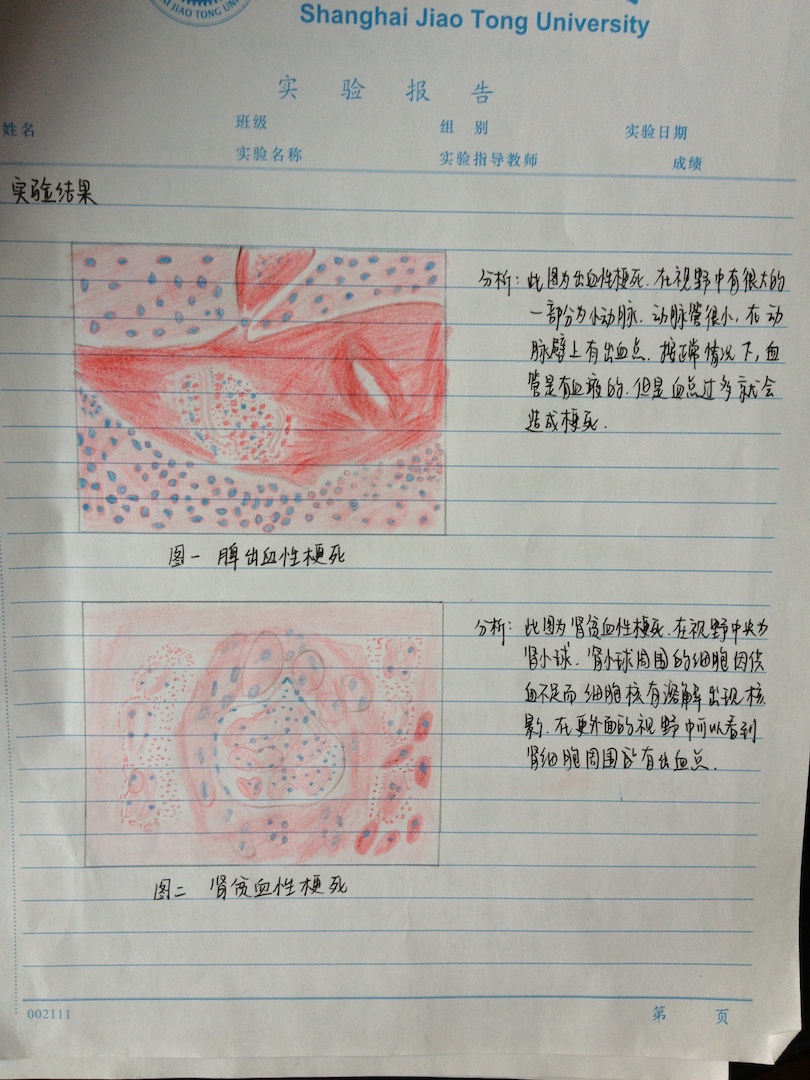 JIAO TONG UNI
Shanghai Jiao Tong University
实验报告
姓名 班级 组别 实验日期
实验名称 实验指导教师 成绩
实验结果
分析：此图为出血性梗死.在视野中有很大的
一部分为小动脉.动脉管很小,在动
脉臂上有出血点.按正常情况下,血
管是有血液的.但是血点过多就会
造成梗死.
图一 脾出血性梗死
分析：此图为肾贫血性梗死.在视野中央为
肾小球.肾小球周围的细胞因供
血不足而细胞核有溶解出现核
影.在更外面的视野中可以看到
肾细胞周围都有出血点.
图二 肾贫血性梗死
002111
第 页